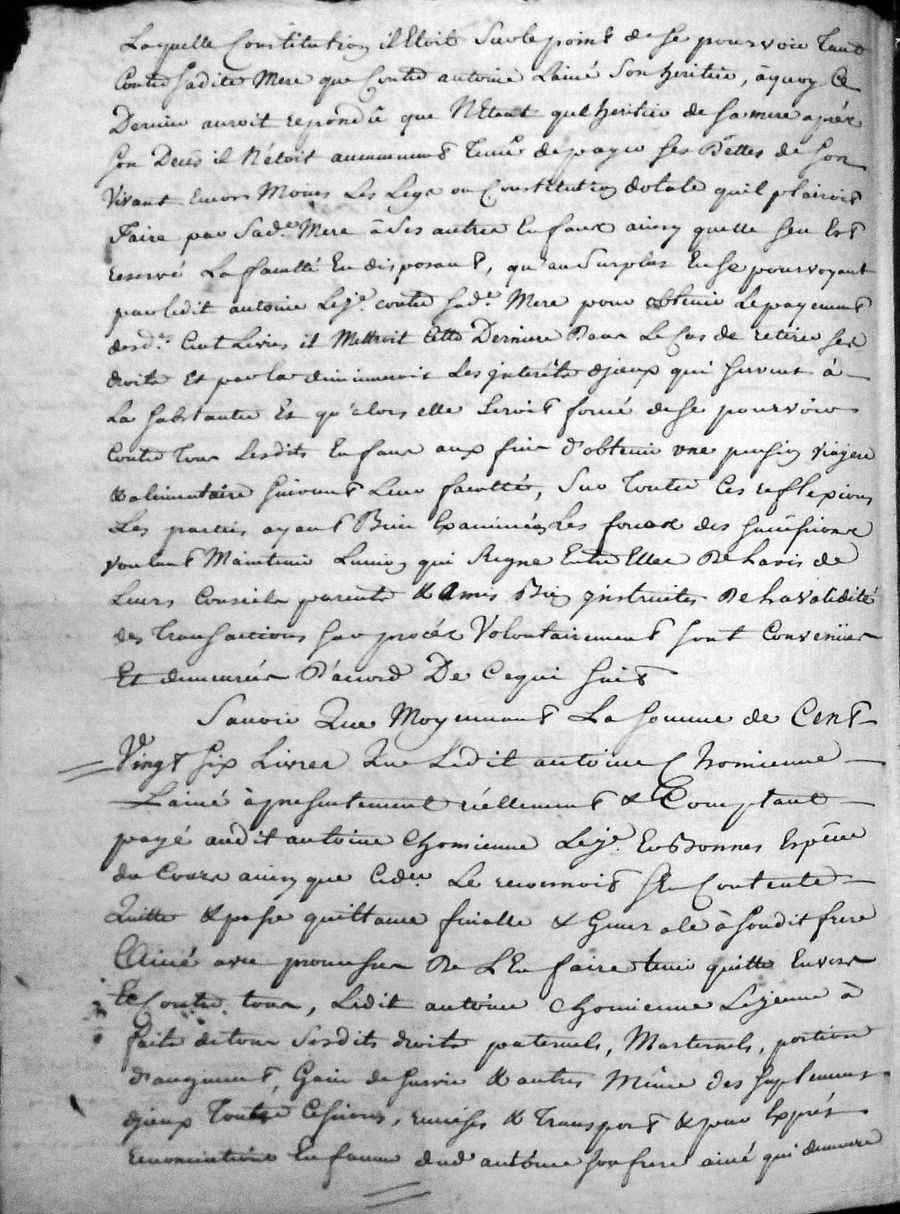 Laquelle Constitution il Etoit Sur le point de se pourvoir Tant
Contre Sadite Mere que Contre antoine Lainé Son heritier, à quoy Ce
Dernier auroit repondû que N'Etant qu'heritier de sa mere aprés
son Decès il N'étoit aucunement Tenu de payer ses Dettes de son
Vivant encor Moins Les Legs ou Constitution dotale qu'il plairoit
Faire par Sad.e Mere à Ses autres Enfans ainsy quelle s'en Est
reservé La faculté En disposant, qu'au Surplus En se pourvoyant
par ledit antoine Le j.e contre sad.e Mere pour obtenir Le payement
desd.s Cent Livres il Mettroit Cette Derniere Dans Le Cas de retirer ses
droits Et par la diminueroit Les jnterêts djceux qui servent à
La substanter Et qu'alors elle seroit forcé de se pourvoir
Contre Tous Lesdits Enfans aux fins d'obtenir une pension viagere
& alimentaire suivant Leur faculté, Sur Toutes Ces reflexions
Les parties ayant Bien Examinées Les forces des successions
voulant Maintenir Lunion qui Regne Entre Elles De Lavis de
Leurs Conseils parents & Amis Bien jnstruites De La validité
des Transactions sur procés Volontairement sont Convenües
Et demeurées D'acord De Ce qui suit
Savoir Que Moyennant La somme de Cent
Vingt six Livres Que Ledit antoine Chomienne
Lainé à presentement réellement & Comptant
payé audit antoine Chomienne Le j.e En Bonnes Espéces
du Cours ainsy que Ce der Le reconnoit s'En Contente
Quitte & passe quittance finalle & Generale à sondit frere
Ainé avec promesse De L'En faire tenir quitte Envers
Et Contre tous, Ledit antoine Chomienne Le jeune à
fait de tous Sesdits droits paternels, Maternels, portion
d'augment, Gain de survie & autres Même des suplement
djceux Toutes Cessions, remises & Transport & pour Exprés
renonciations En faveur dud antoine son frere ainé qui demeure